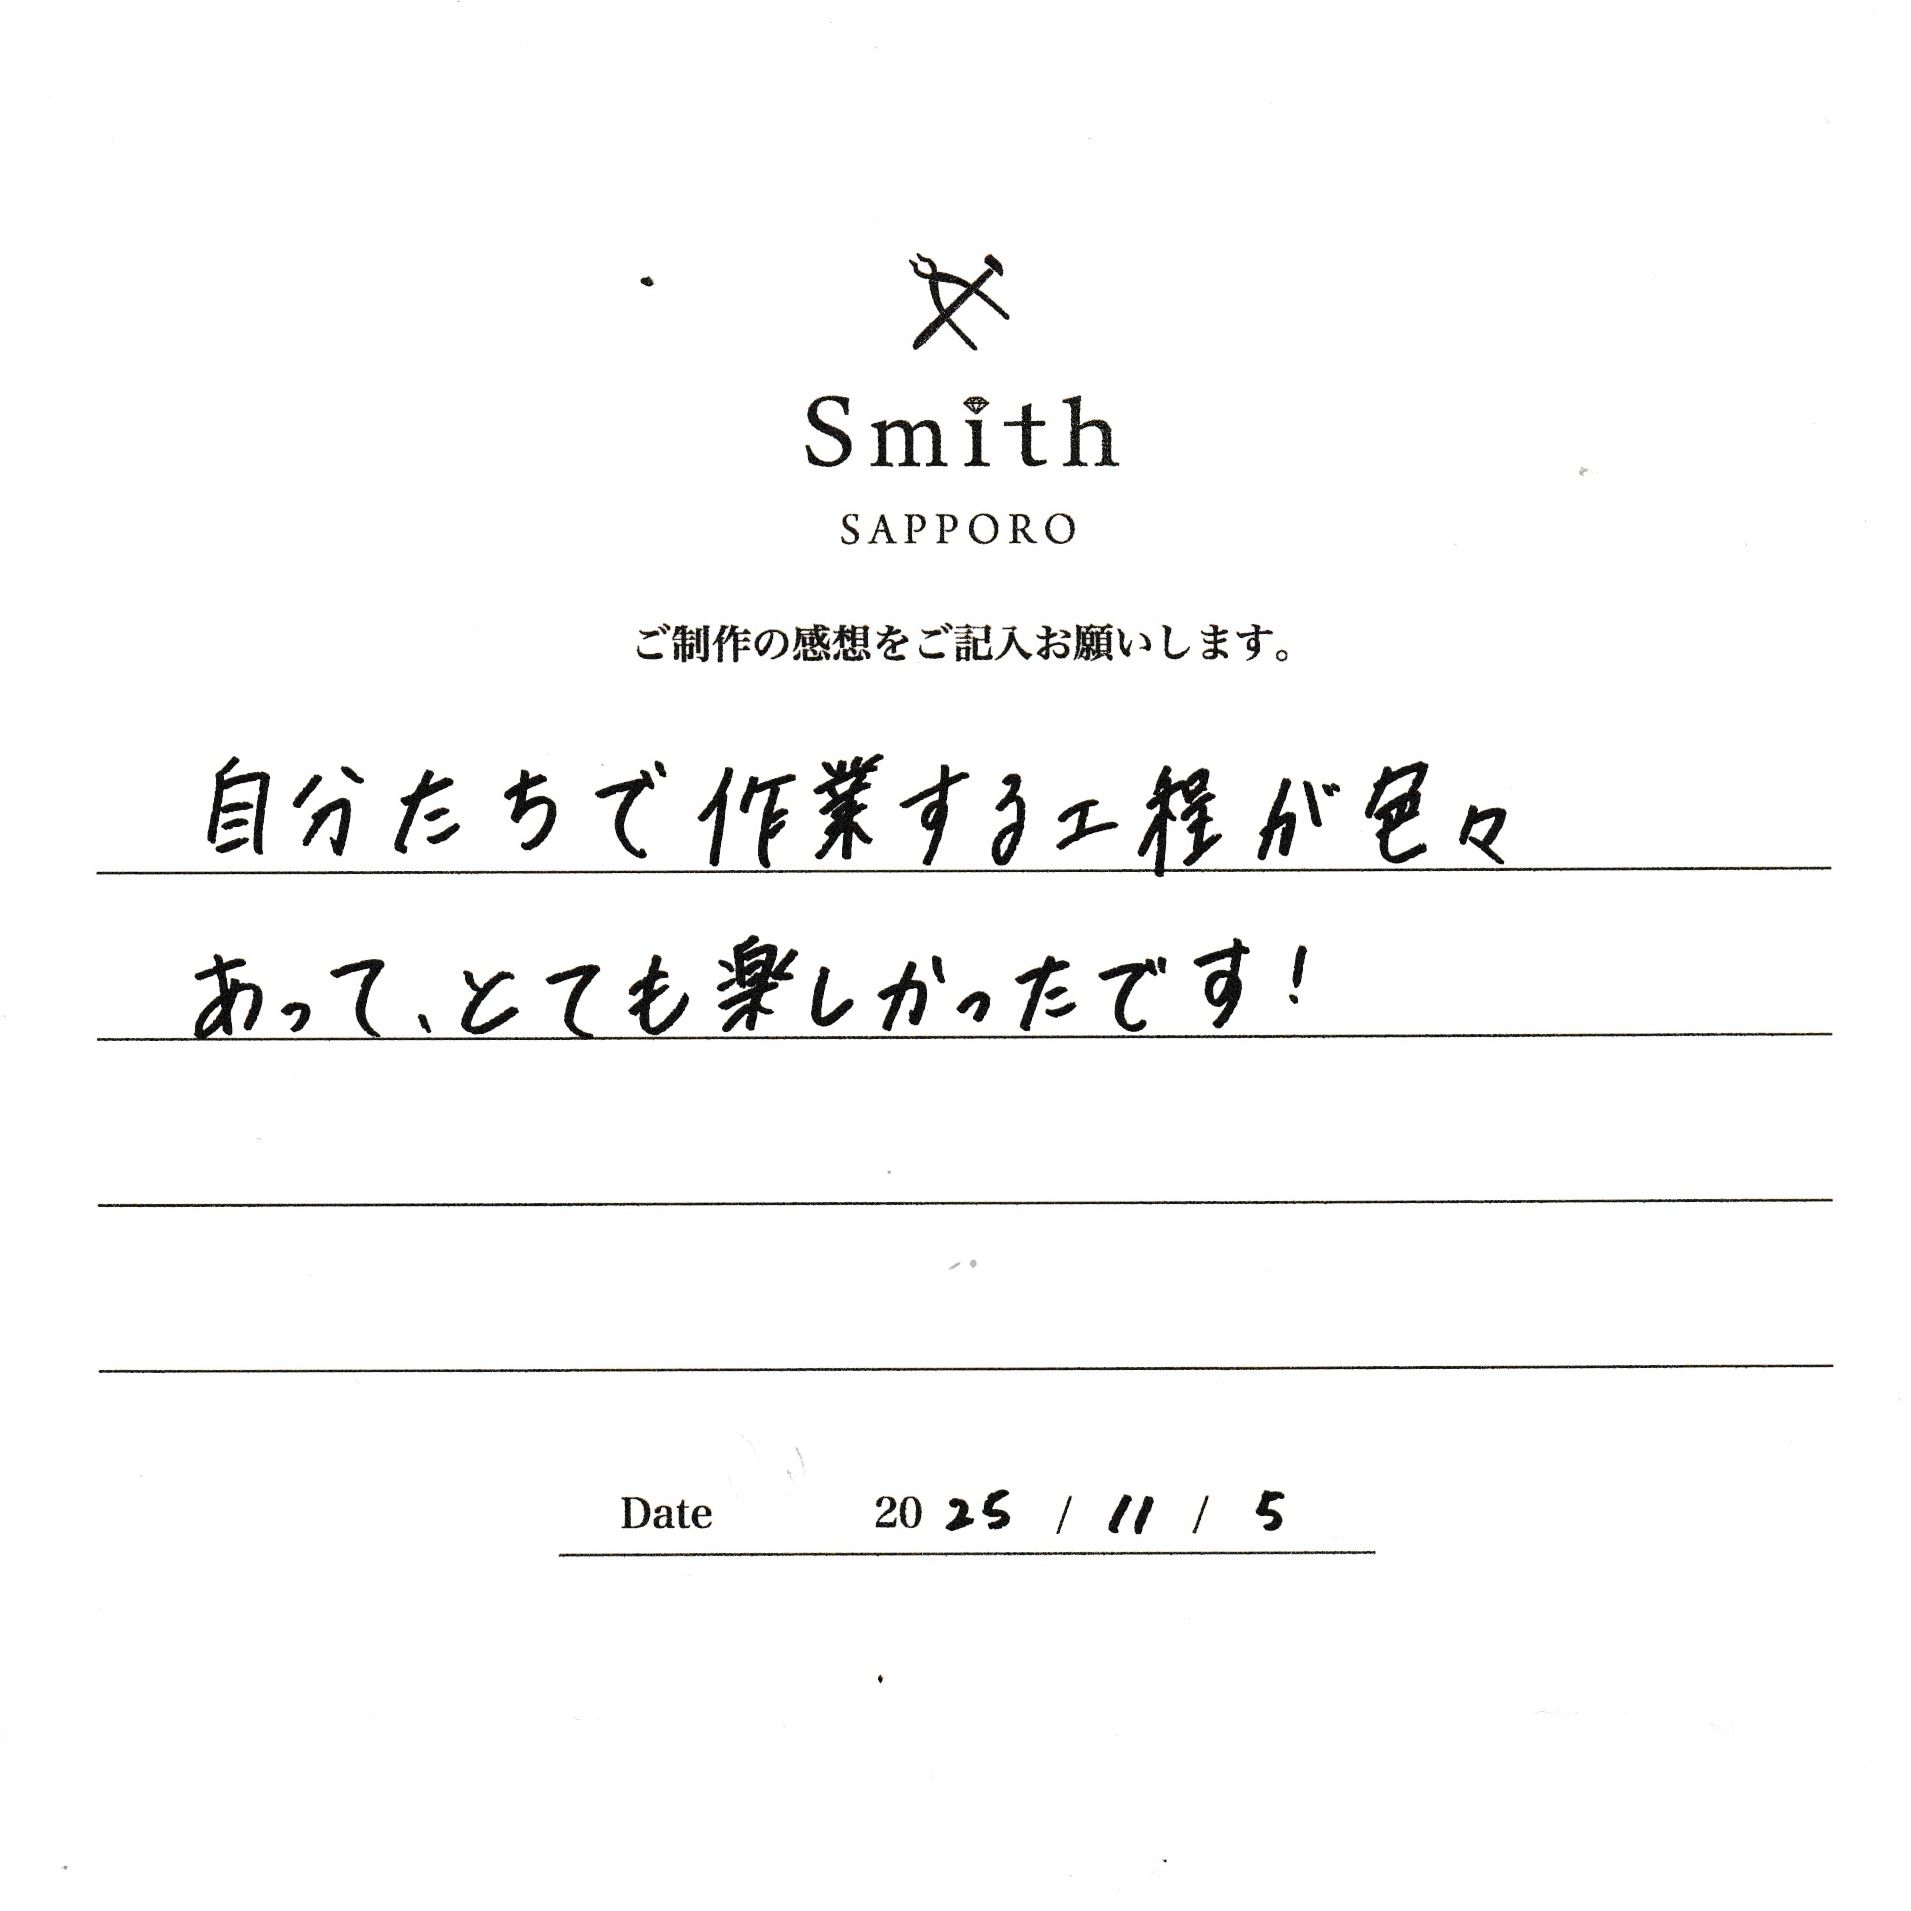 Smith
SAPPORO
ご制作の感想をご記入お願いします。
自分たちで作業する工程が色々
あって、とても楽しかったです!
Date 2025 / 11 / 5